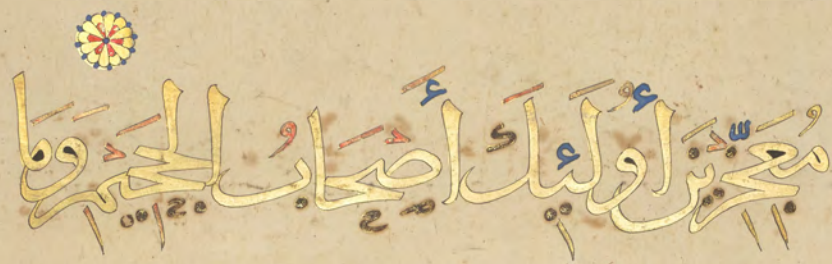 مُعَجِّزِينَ أُولَئِكَ أَصْحَابُ الْجَحِيمِ وَمَا